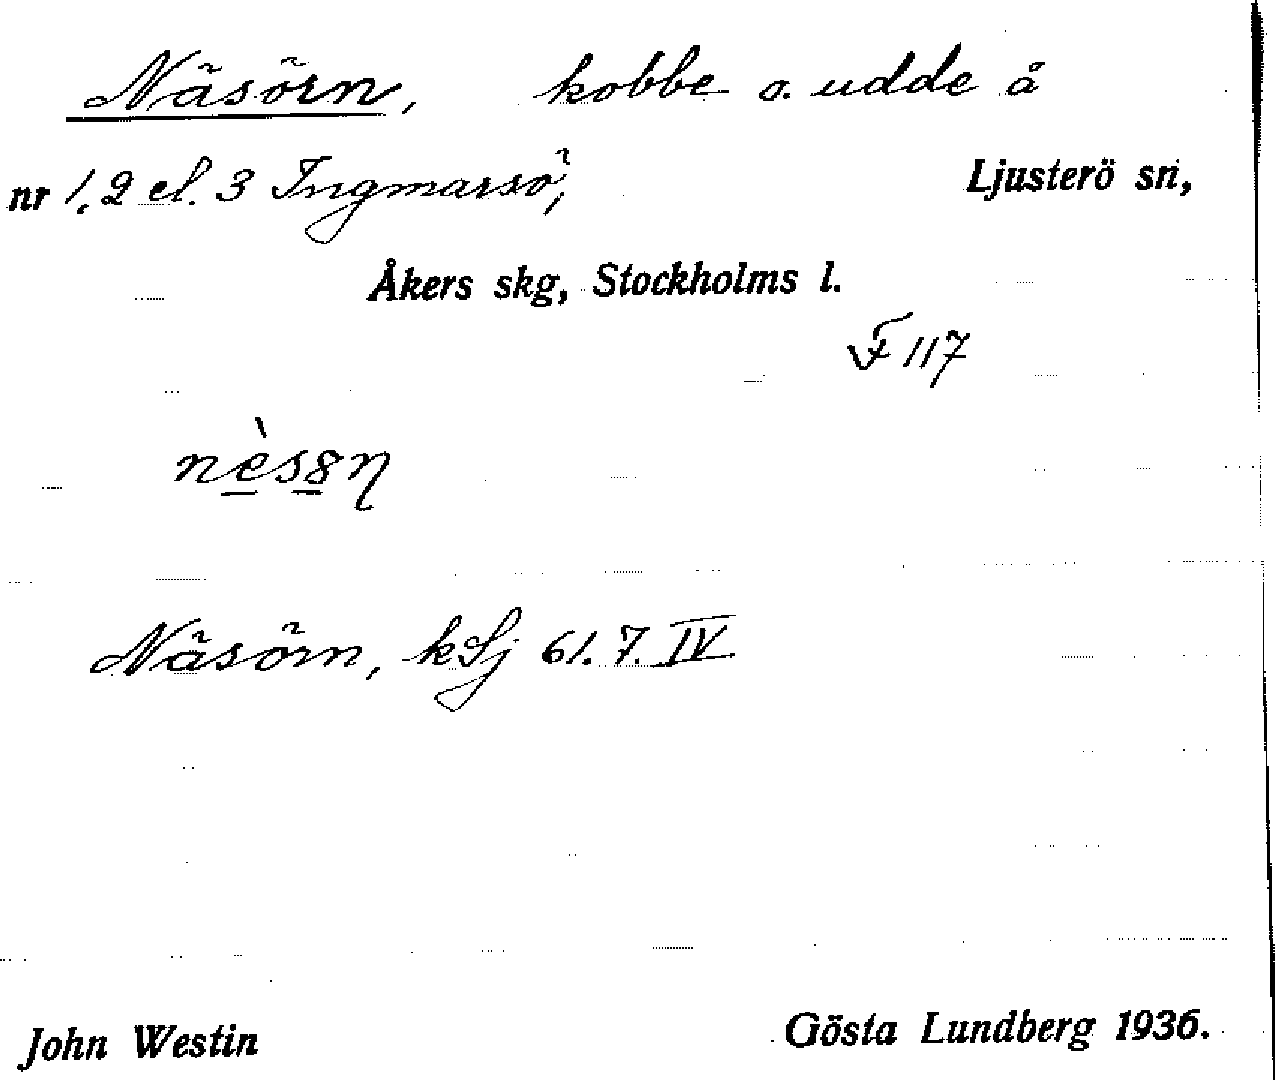 Näsörn, kobbe o. udde å
nr 1, 2 el. 3 Ingmarsö, Ljusterö sn,
Åkers skg, Stockholms l.
F 117
nès8η
Näsörn, kSj 61.7.IV
John Westin Gösta Lundberg 1936.